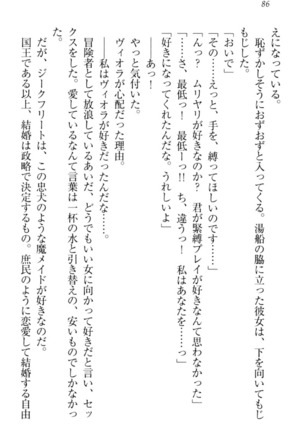 86
えになっている。
恥ずかしそうにおずおずと入ってくる。湯船の脇に立った彼女は、下を向いてもじ
もじした。
「おいで」
「その……えっと、手を、縛ってほしいのです……」
「んっ？　ムリヤリが好きなのか？　君が緊縛プレイが好きなんて思わなかった」
「……さ、最低っ！　最低ーっ!!　ち、違うっ！　私はあなたを……っ」
「好きになってくれたんだな。うれしいよ」
――あっ！
やっと気付いた。
ヴィオラが心配だった理由。
――私はヴィオラが好きだったんだな……。
冒険者として放浪しているあいだ、どうでもいい女に向かって好きだと言い、セッ
クスをした。愛しているなんて言葉は一杯の水と引き替えの、安いものでしかなかっ
た。
だが、ジークフリートは、この忠犬のような魔メイドが好きなのだ。
国王である以上、結婚は政略で決定するもの。庶民のように恋愛して結婚する自由